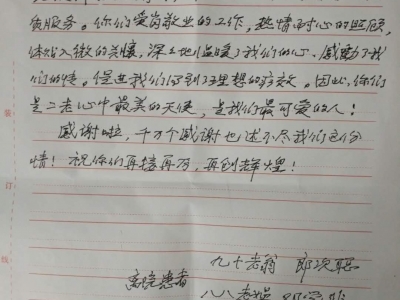 质服务。你们爱岗敬业的工作，热情耐心的照顾，
体贴入微的关怀，深深地温暖了我们的心、感动了我
们的情。促进我们得到了理想的疗效。因此，你们
是二老心中最美的天使，是我们最可爱的人！
感谢啦，千万个感谢也述不尽我们这份
情！祝你们再接再厉，再创辉煌！
九十老翁
离院患者
八八老媪
装
订
线